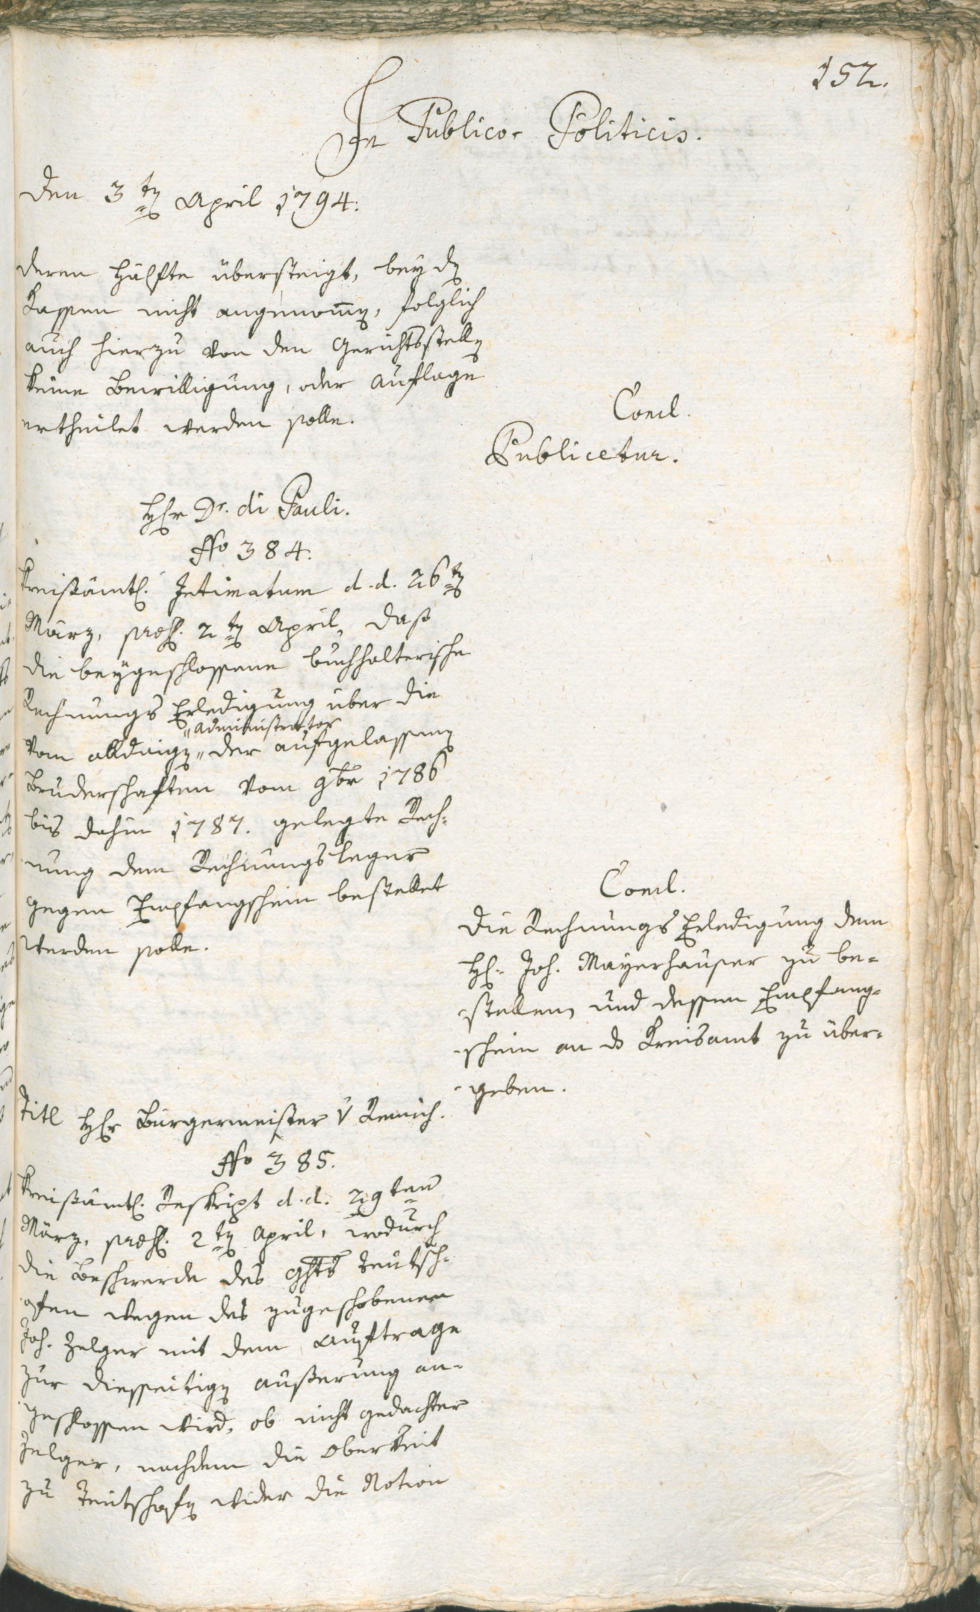 152.
In Publico-Politicis.
Den 3ten April 1794.
deren Hälfte übersteigt, bey den
Kassen nicht angenommen, folglich
auch hierzu von den Gerichtsstellen
keine Bewilligung, oder Auflage
ertheilet werden solle.
Concl.
Publicetur.
Herr Dr. di Pauli.
No 384.
Kreißämtl. Intimatum d.d. 26ten
März, præs. 2ten April, daß
die beygeschlossene buchhalterische
Rechnungs Erledigung über die
"administrator
vom alldaigen " der aufgelassenen
Bruderschaften vom 9br 1786
bis dahin 1787. gelegte Rech-
nung dem Rechnungsleger
gegen Empfangschein bestellet
werden solle.
Concl.
Die Rechnungs Erledigung dem
H. Joh. Mayrhauser zu be-
stellen, und dessen Empfang-
schein an das Kreisamt zu über-
geben.
Titl Herr Bürgermeister v Remich.
No 385.
Kreißämtl. Reskript d.d. 29ten
März, præs. 2ten April, wodurch
die Beschwerde des Ghts Teutsch-
ofen wegen des zugeschobenen
Joh. Zelger mit dem Auftrage
zur diesseitigen Äußerung an-
geschlossen wird, ob nicht gedachter
Zelger, nachdem die Oberkeit
zu Teutschofen wider die Notion